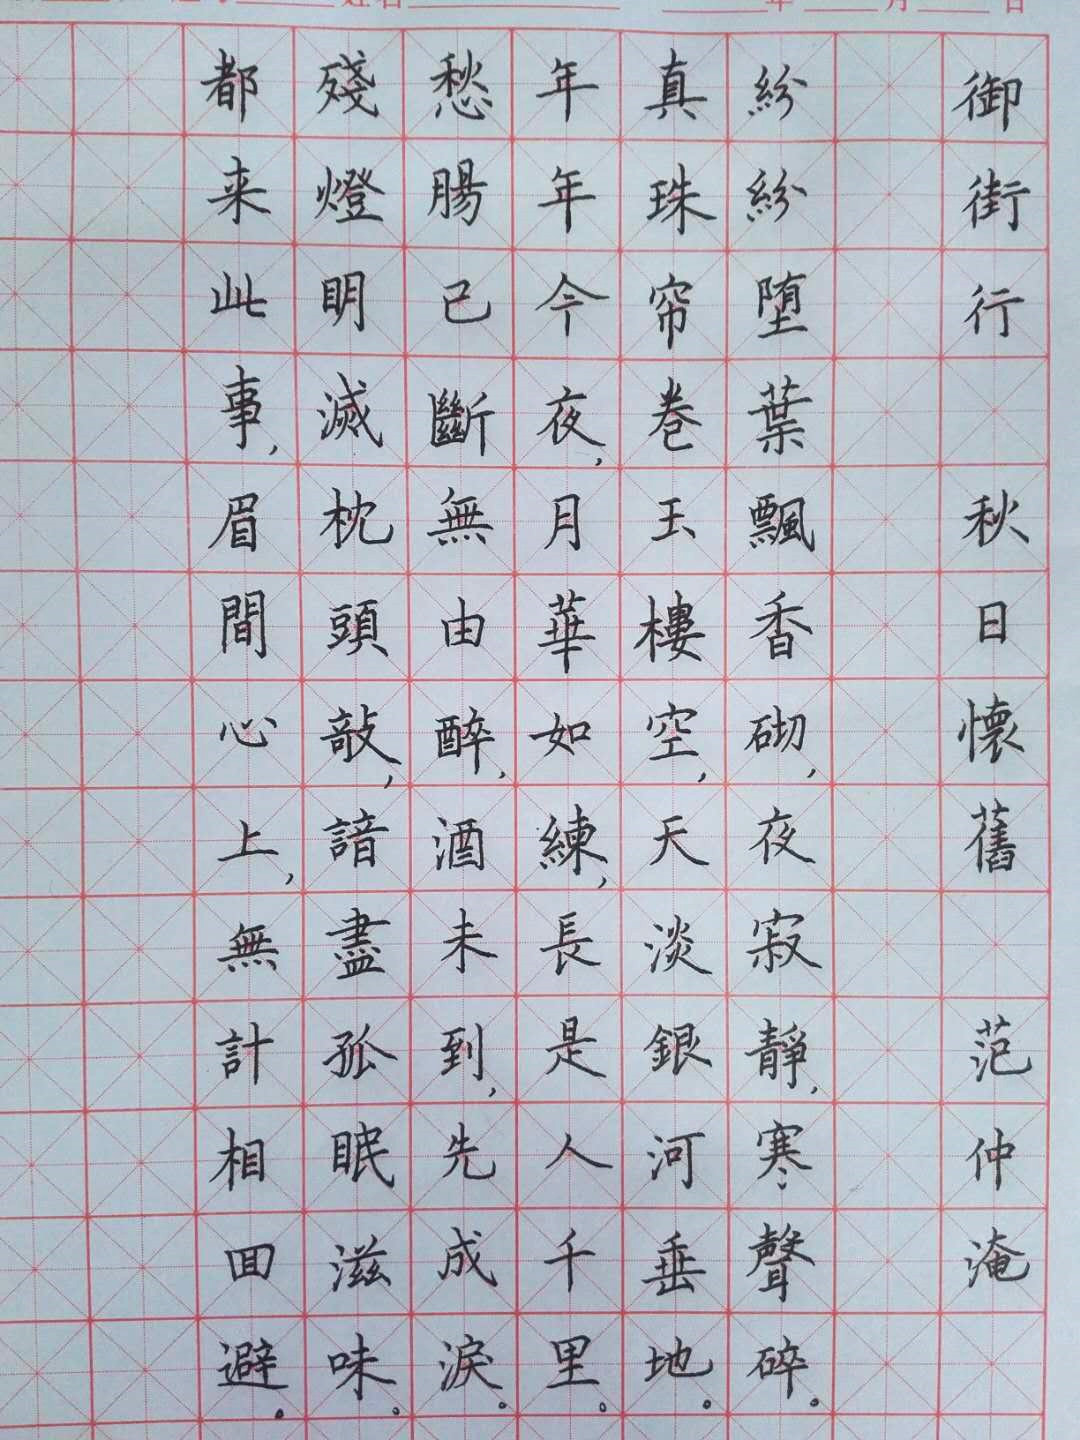 姓名 年 月 日
御街行 秋日懷舊 范仲淹
紛紛墮葉飄香砌,夜寂靜,寒聲碎。
真珠帘卷玉樓空,天淡銀河垂地。
年年今夜,月華如練,長是人千里。
愁腸已斷無由醉,酒未到,先成淚。
殘燈明滅枕頭敲,諳盡孤眠滋味。
都来此事,眉間心上,無計相回避。